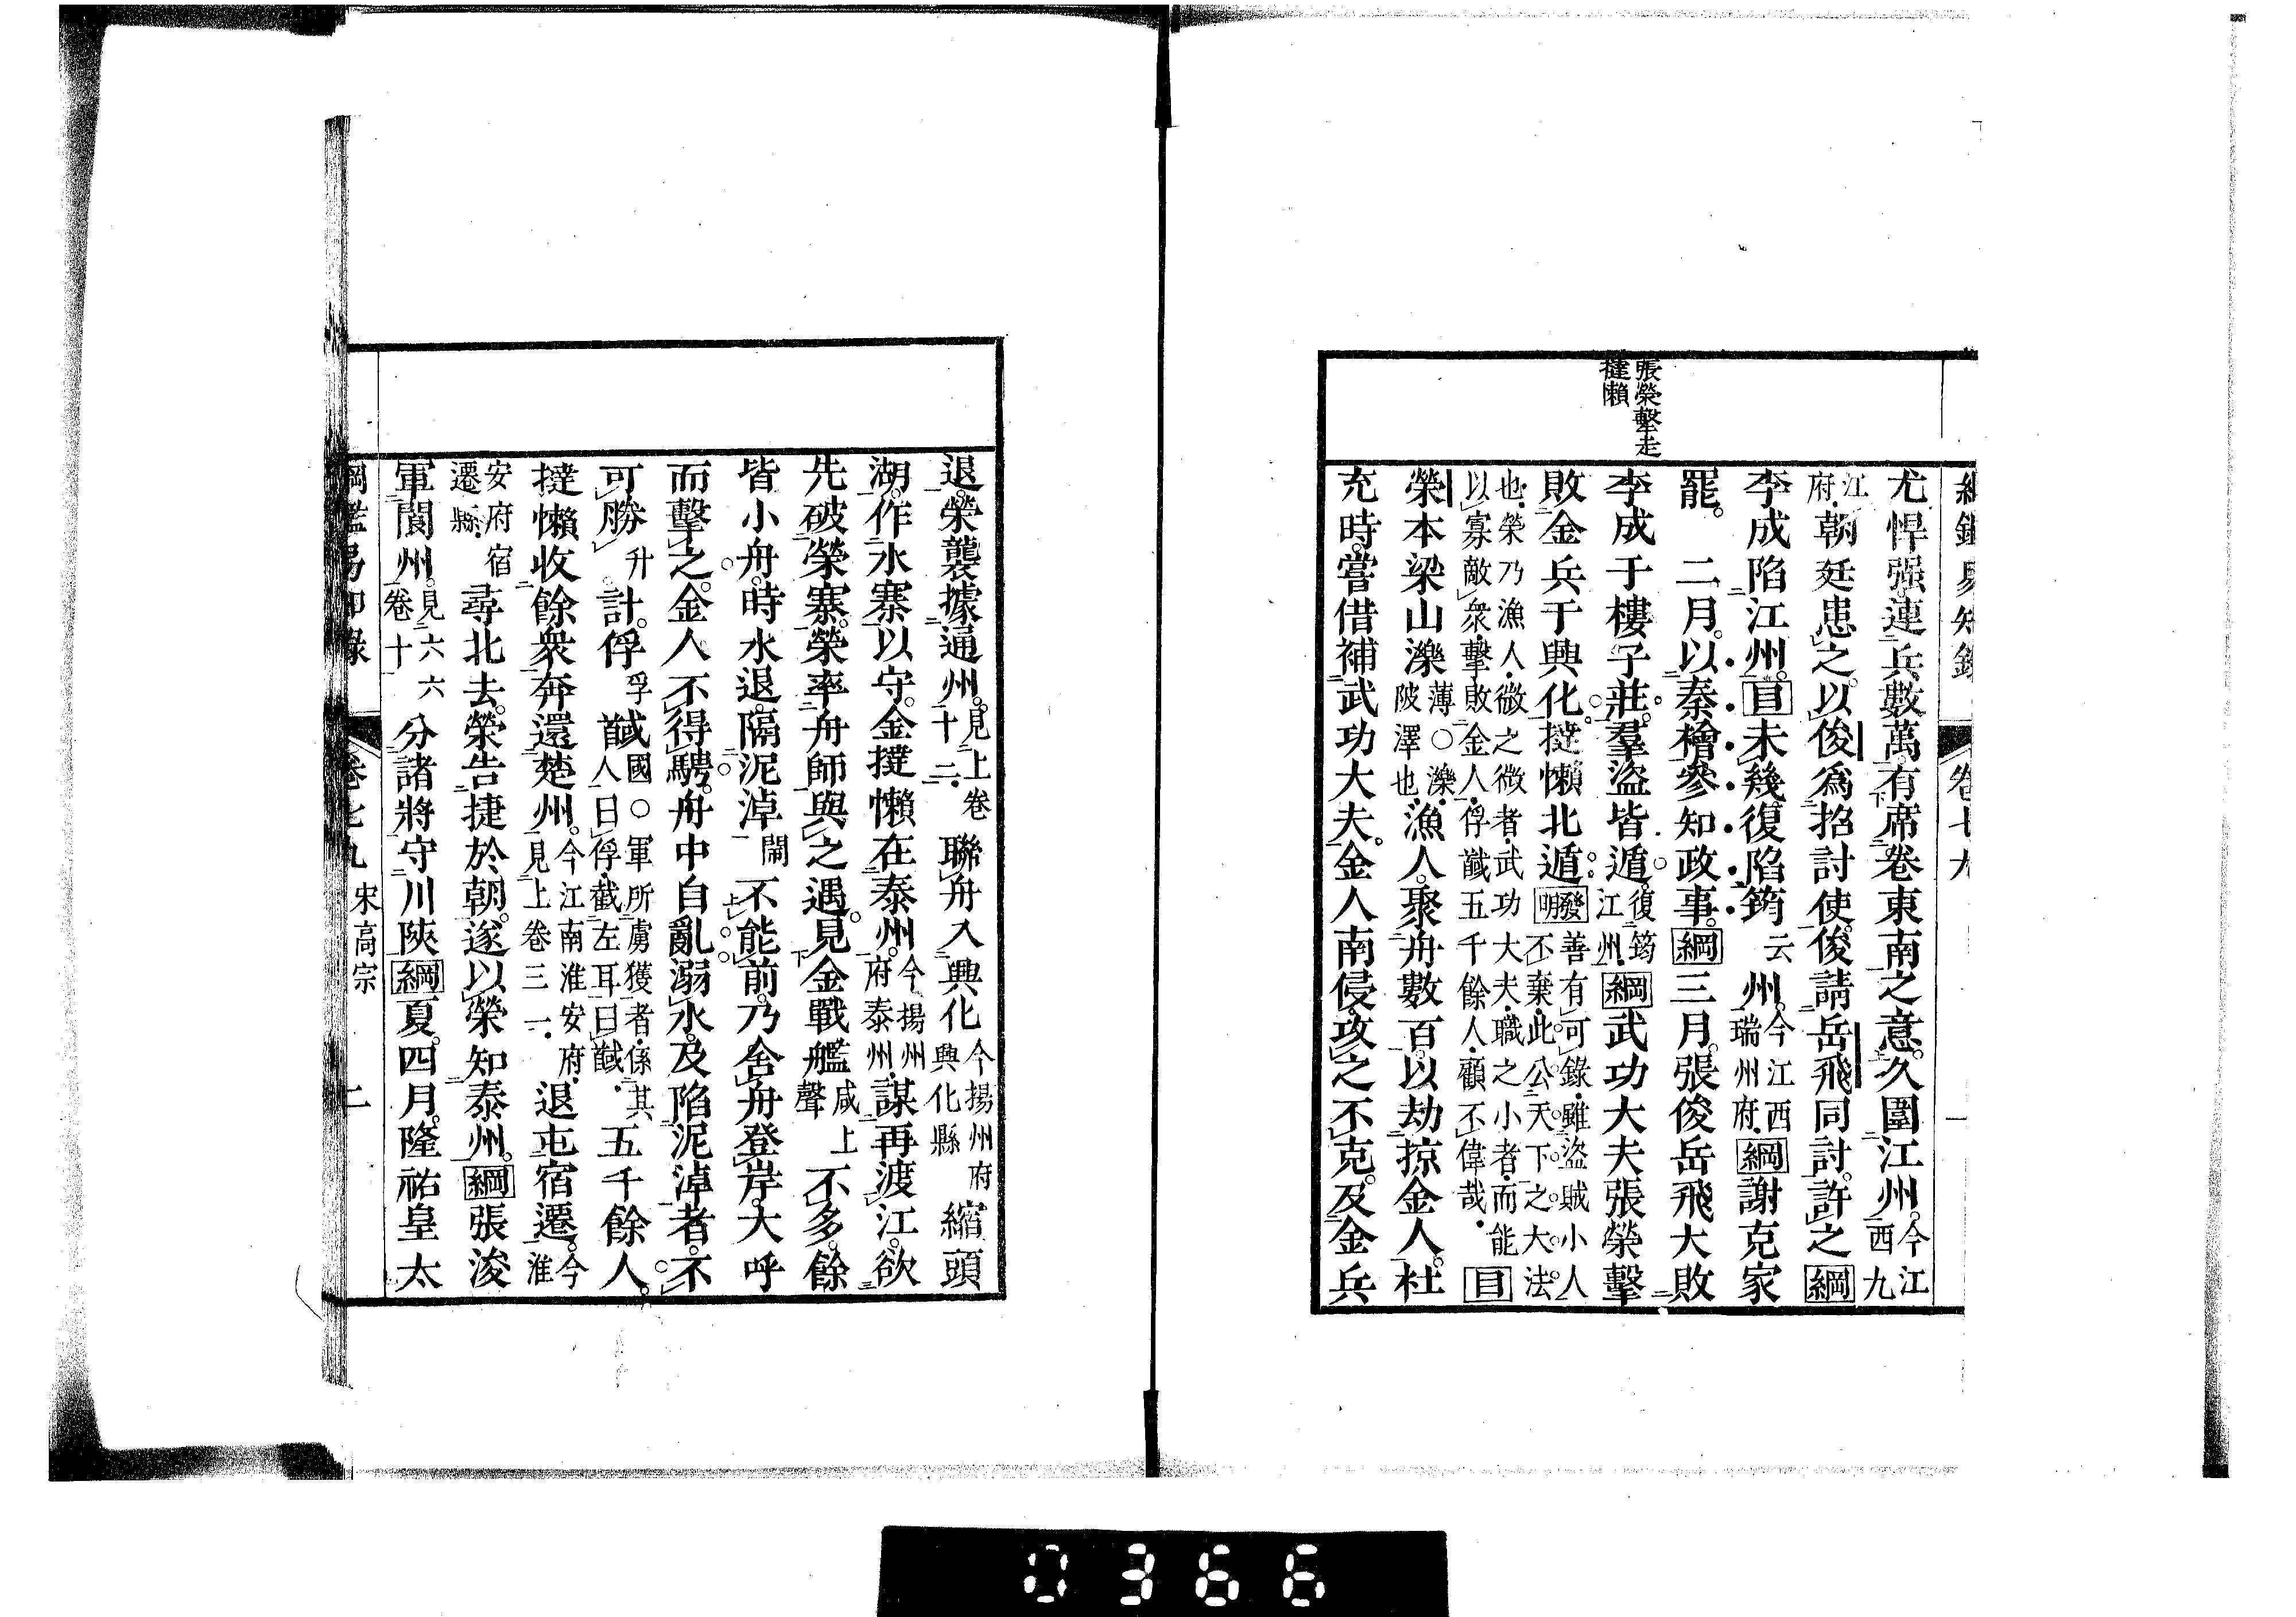 張榮擊走
撻懶
尤悍强連兵數萬有席卷東南之意久圍江州今江西九
江府朝廷患之以俊爲招討使俊請岳飛同討許之綱
李成陷江州目未幾復陷筠云州今江西瑞州府綱謝克家
罷 二月以秦檜參知政事綱三月張俊岳飛大敗
李成于樓子莊羣盜皆遁復筠江州綱武功大夫張榮擊
敗金兵于興化撻懶北遁發明善有可錄雖盜賊小人不棄此公天下之大法
也榮乃漁人微之微者武功大夫職之小者而能以寡敵衆擊敗金人俘馘五千餘人顧不偉哉目
榮本梁山濼薄○濼陂澤也漁人聚舟數百以劫掠金人杜
充時嘗借補武功大夫金人南侵攻之不克及金兵
退榮襲據通州見上卷十二聯舟入興化今揚州府興化縣縮頭
湖作水寨以守金撻懶在泰州今揚州府泰州謀再渡江欲
先破榮寨榮率舟師與之遇見金戰艦咸上聲不多餘
皆小舟時水退隔泥淖閙不能前乃舍舟登岸大呼
而擊之金人不得騁舟中自亂溺水及陷泥淖者不
可勝升計俘孚馘國○軍所虜獲者係其首人曰俘截左耳曰馘五千餘人
撻懶收餘衆奔還楚州今江南淮安府見上卷三一退屯宿遷今淮
安府宿遷縣尋北去榮告捷於朝遂以榮知泰州綱張浚
軍閬州見六六卷十分諸將守川陝綱夏四月隆祐皇太
宋高宗
二
0366